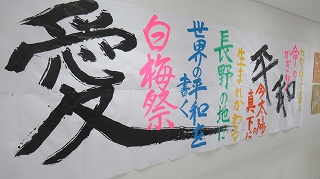 愛
白梅祭
世界の平和を
書く
長野の地に
生まれかわる
平和
今太陽の
真下に